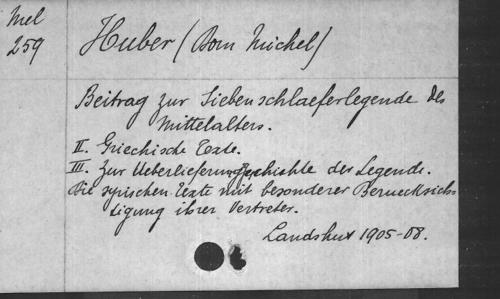 Mel
259
Huber (Dom Michel)
Beitrag zur Siebenschlaeferlegende des
Mittelalters.
II. Griechische Texte.
III. Zur Ueberlieferungsgeschichte der Legende.
Die syrischen Texte mit besonderer Beruecksich-
tigung ihrer Vertreter.
Landshut 1905-08.